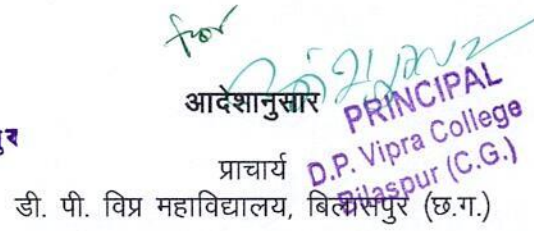 for
आदेशानुसार
PRINCIPAL
D.P. Vipra College
Bilaspur (C.G.)
प्राचार्य
डी. पी. विप्र महाविद्यालय, बिलासपुर (छ.ग.)